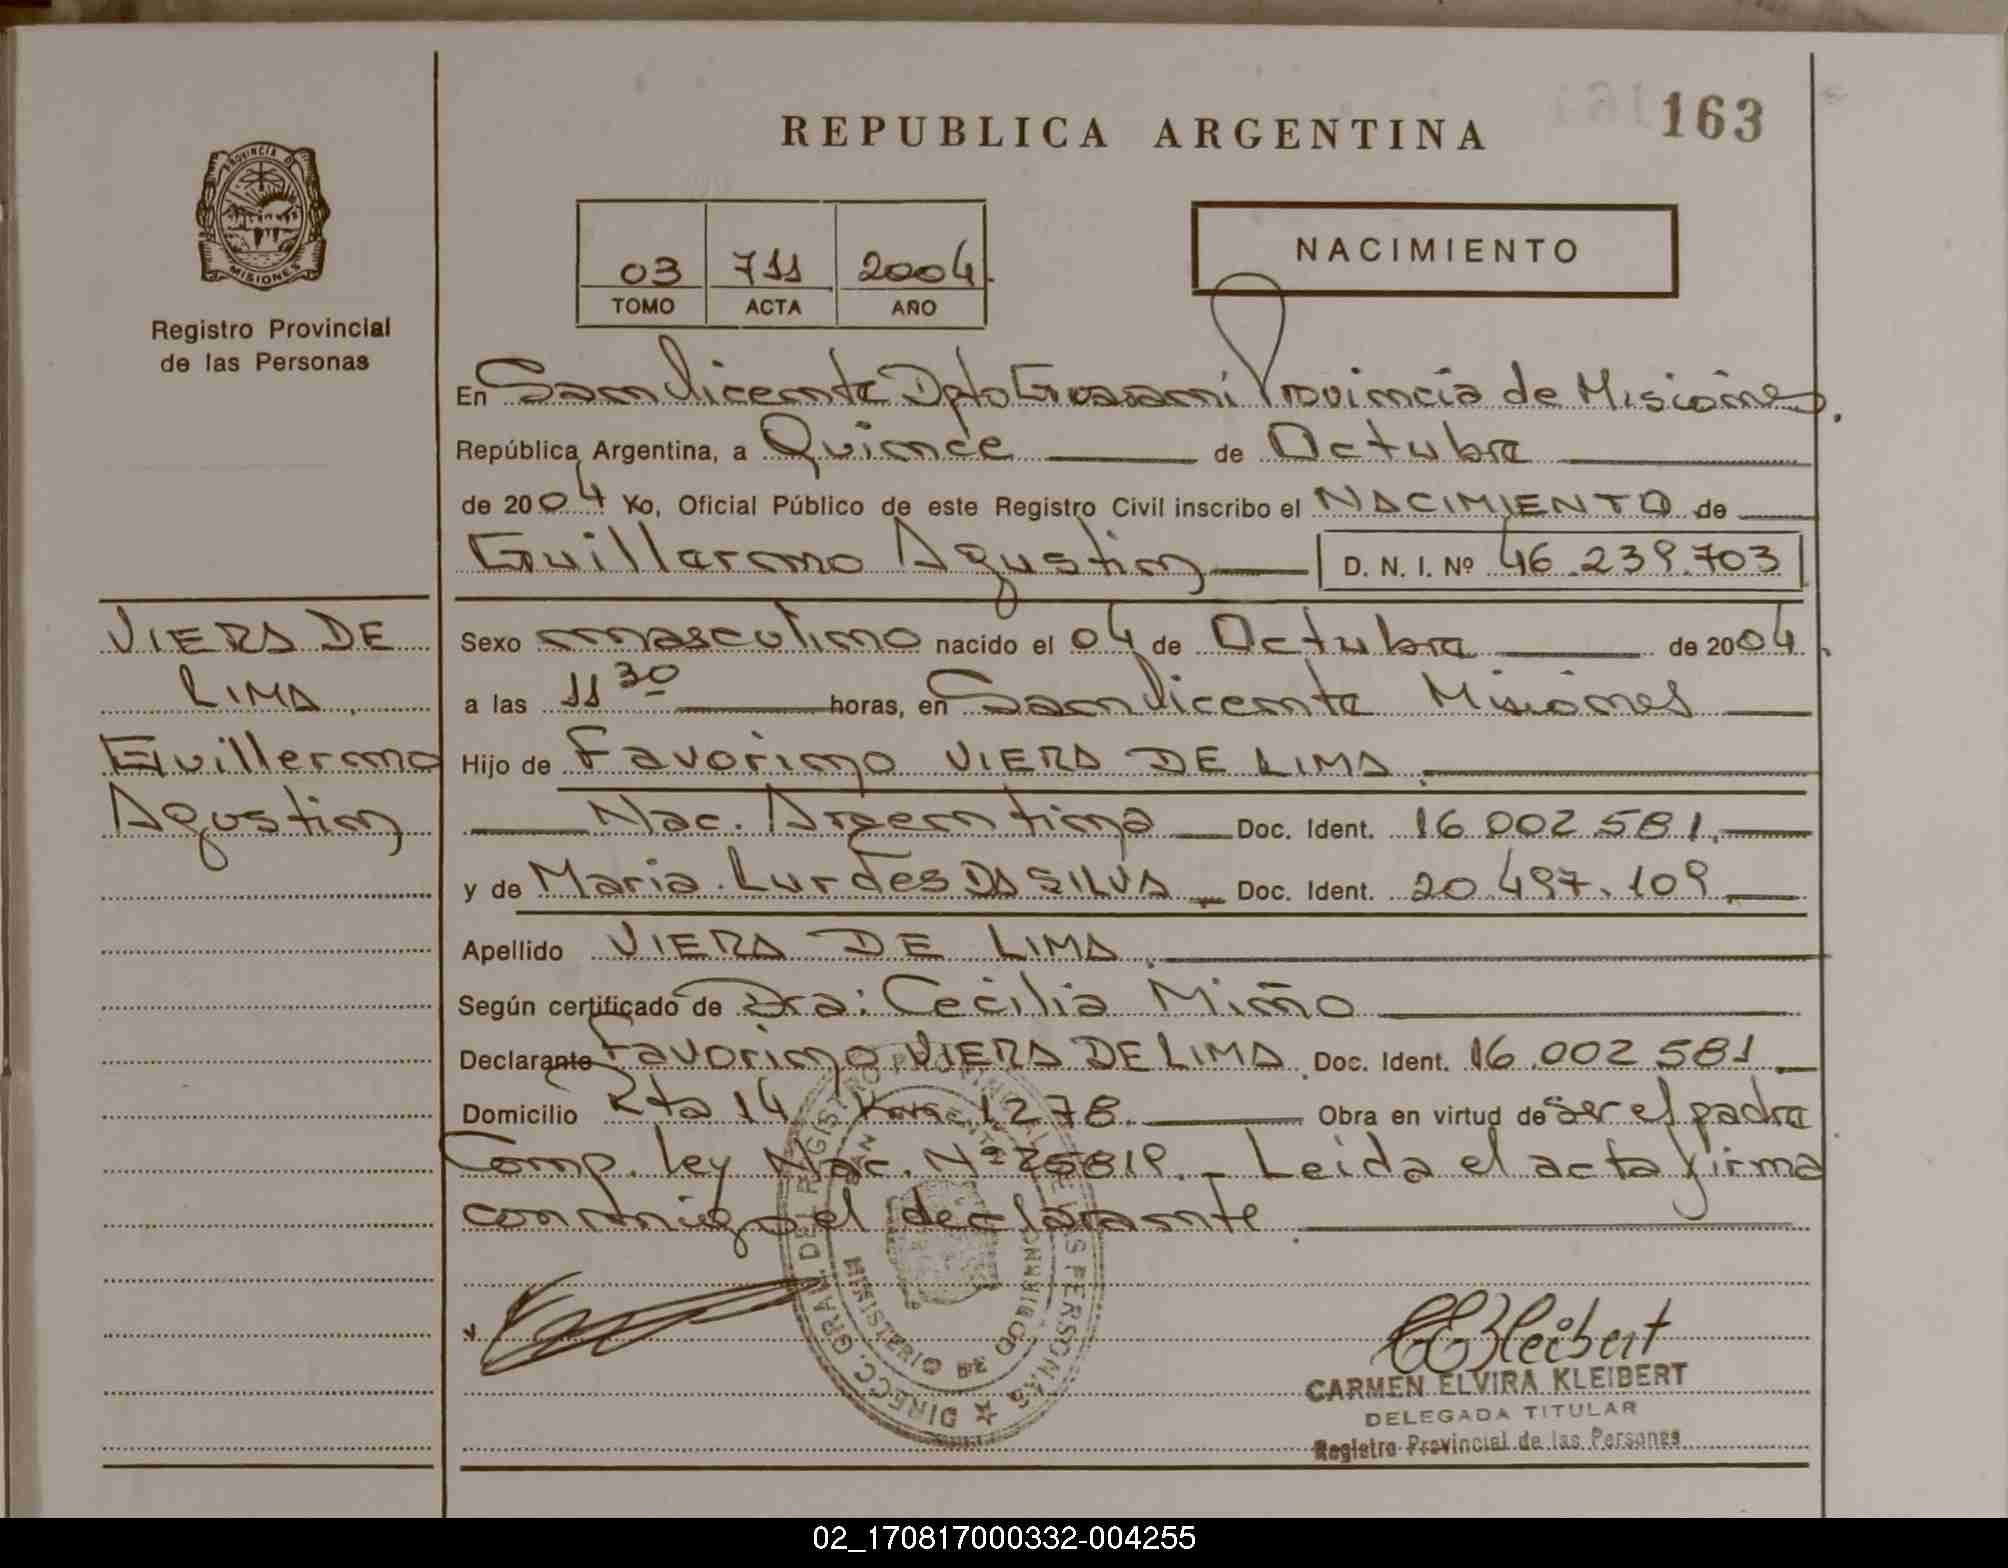 163
REPUBLICA ARGENTINA
PROVINCIA DE
MISIONES
Registro Provincial
de las Personas
NACIMIENTO
03 711 2004
TOMO ACTA AÑO
En San Vicente Dpto Guarani Provincia de Misiones.
República Argentina, a Quince de Octubre
de 2004 Yo, Oficial Público de este Registro Civil inscribo el NACIMIENTO de
Guillermo Agustin D. N. I. Nº 46.239.703
VIERA DE
LIMA
Guillermo
Agustin
Sexo masculino nacido el 04 de Octubre de 2004.
a las 11 30 horas, en San Vicente Misiones
Hijo de Favorino VIERA DE LIMA
Nac. Argentina Doc. Ident. 16.002.581.
y de Maria Lurdes DA SILVA Doc. Ident. 20.497.109
Apellido VIERA DE LIMA
Según certificado de Dra: Cecilia Miño
Declarante Favorino VIERA DE LIMA Doc. Ident. 16.002.581
Domicilio Rta 14 1278 Obra en virtud de ser el padre
Comp. Ley Nac. Nº 25819. - Leida el acta firma
conmigo el declarante
DIRECC. GRAL. DE REGISTRO PROVINCIAL DE LAS PERSONAS
MINISTERIO DE GOBIERNO
CEKleibert
CARMEN ELVIRA KLEIBERT
DELEGADA TITULAR
Registro Provincial de las Personas
02_170817000332-004255